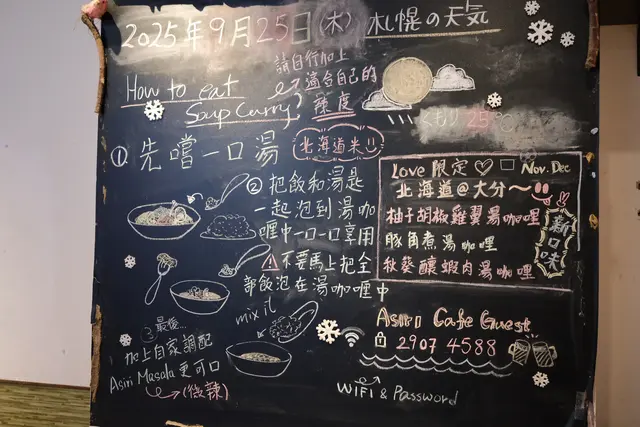 2025年9月25日(木) 札幌の天気
How to eat
Soup Curry
請自行加上
適合自己的
辣度
くもり 25℃
① 先嚐一口湯
北海道米!!
② 把飯和湯匙
一起泡到湯咖
喱中一口一口享用
⚠不要馬上把全
部飯泡在湯咖喱中
mix it
③ 最後...
加上自家調配
Asiri Masala更可口
(微辣)
Love 限定 ♡ □ Nov. Dec
北海道@大分~
柚子胡椒雞翼湯咖喱
豚角煮湯咖喱
秋葵釀蝦肉湯咖喱
新口味
Asiri Cafe Guest
2907 4588
WIFI & Password